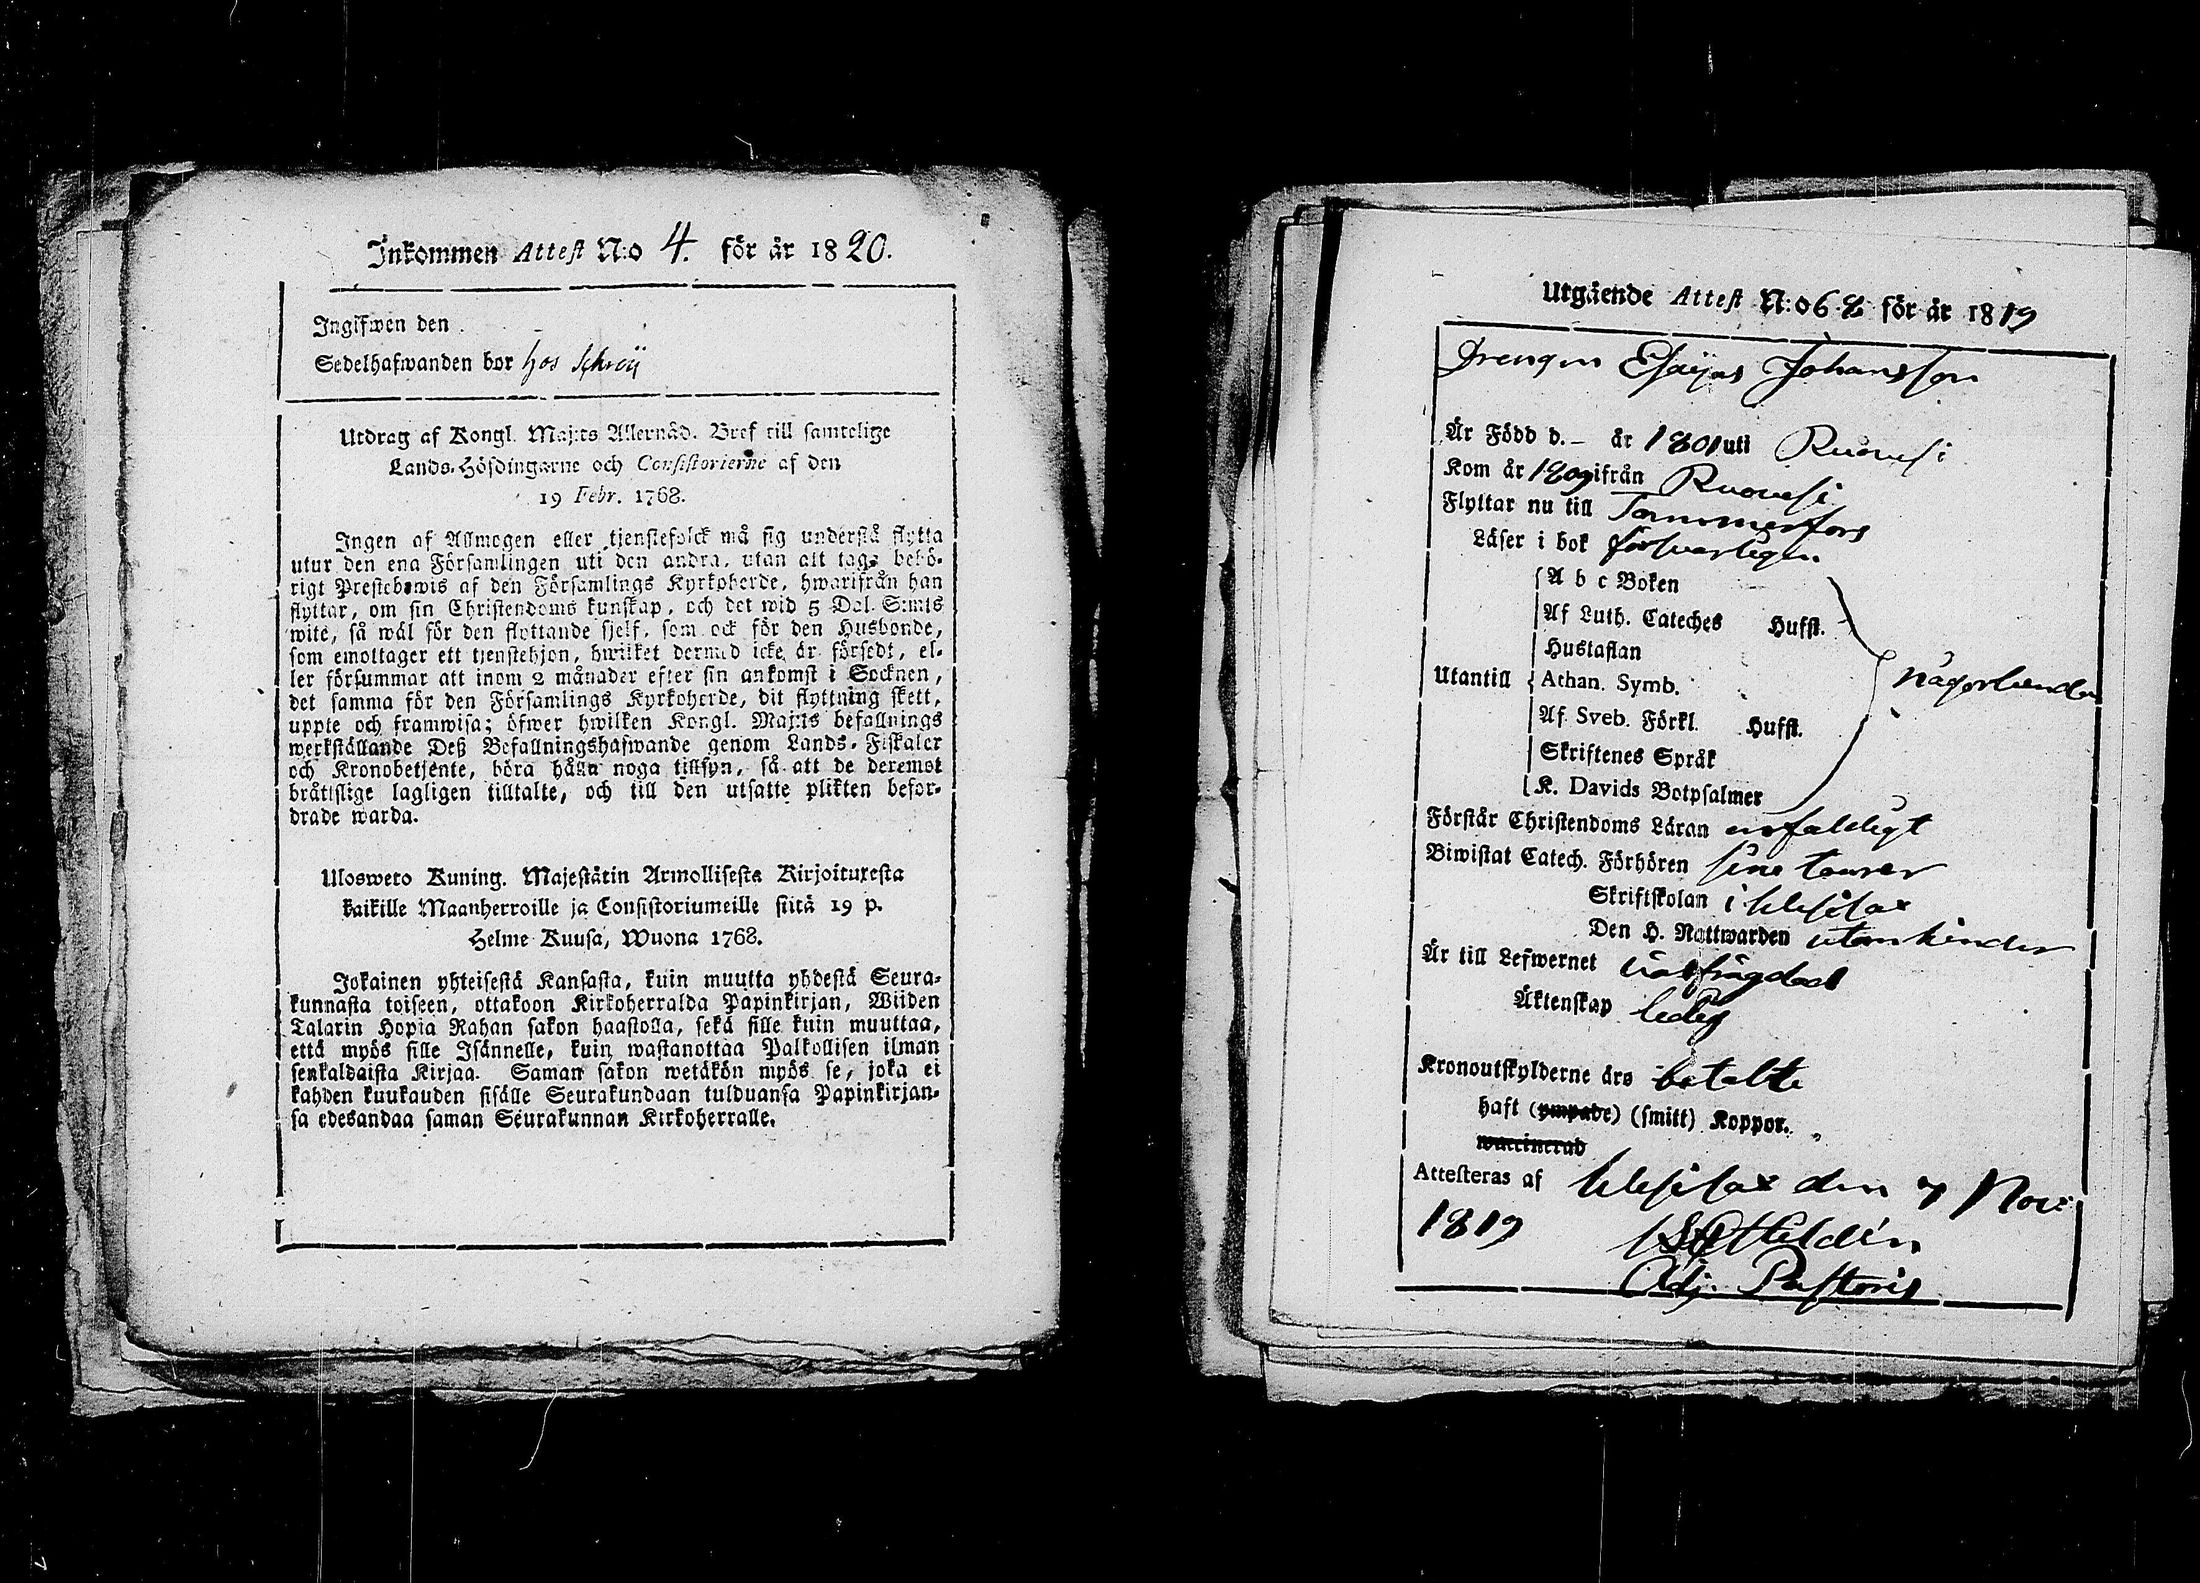 Inkommen Attest N:o 4. för år 1820.
Ingifwen den
Sedelhafwanden bor hos Schreij
Utdrag af Kongl. Maj:ts Allernåd. Bref till samtelige
Lands-Höfdingarne och Consistorierne af den
19 Febr. 1768.
Ingen af Allmogen eller tjenstefolck må sig understå flytta
utur den ena Församlingen uti den andra, utan att taga behö-
rigt Prestebewis af den Församlings Kyrkoherde, hwarifrån han
flyttar, om sin Christendoms kunskap, och det wid 5 Dal. S:mts
wite, så wäl för den flyttande sjelf, som ock för den Husbonde,
som emottager ett tjenstehjon, hwilket dermed icke är försedt, el-
ler försummar att inom 2 månader efter sin ankomst i Socknen,
det samma för den Församlings Kyrkoherde, dit flyttning skett,
uppte och framwisa; öfwer hwilken Kongl. Maj:ts befallnings
werkställande Deß Befallningshafwande genom Lands-Fiskaler
och Kronobetjente, böra hålla noga tillsyn, så att de deremot
bråttslige lagligen tilltalte, och till den utsatte plikten befor-
drade warda.
Ulosweto Kuning. Majestätin Armollisesta Kirjoituxesta
kaikille Maanherroille ja Consistoriumeille siitä 19 p.
Helme Kuusa, Wuona 1768.
Jokainen yhteisestä Kansasta, kuin muutta yhdestä Seura-
kunnasta toiseen, ottakoon Kirkoherralda Papinkirjan, Wiiden
Talarin Hopia Rahan sakon haastolla, sekä sille kuin muuttaa,
että myös sille Isännelle, kuin wastanottaa Palkollisen ilman
senkaldaista Kirjaa. Saman sakon wetäkön myös se, joka ei
kahden kuukauden sisälle Seurakundaan tulduansa Papinkirjan-
sa edesandaa saman Seurakunnan Kirkoherralle.
Utgående Attest N:o 68 för år 1819
Drengen Esaijas Johansson
Är Född d. – år 1801 uti Ruovesi
Kom år 1809 ifrån Ruovesi
Flyttar nu till Tammerfors
Läser i bok försvarligen
A b c Boken
Af Luth. Cateches Hufst.
Hustaflan
Utantill Athan. Symb. någorlunda
Af Sveb. Förkl. Hufst.
Skriftenes Språk
K. Davids Botpsalmer
Förstår Christendoms Läran enfaldigt
Biwistat Catech. Förhören sine tourer
Skriftskolan i
Den H. Nattwarden utan hinder
Är till Lefwernet oanfrägdad
Äktenskap ledig
Kronoutskylderne äro betalte
haft (ympade) (smitt) Koppor.
waccinerad
Attesteras af den 7 Nov:
1819
Adj. Pastoris